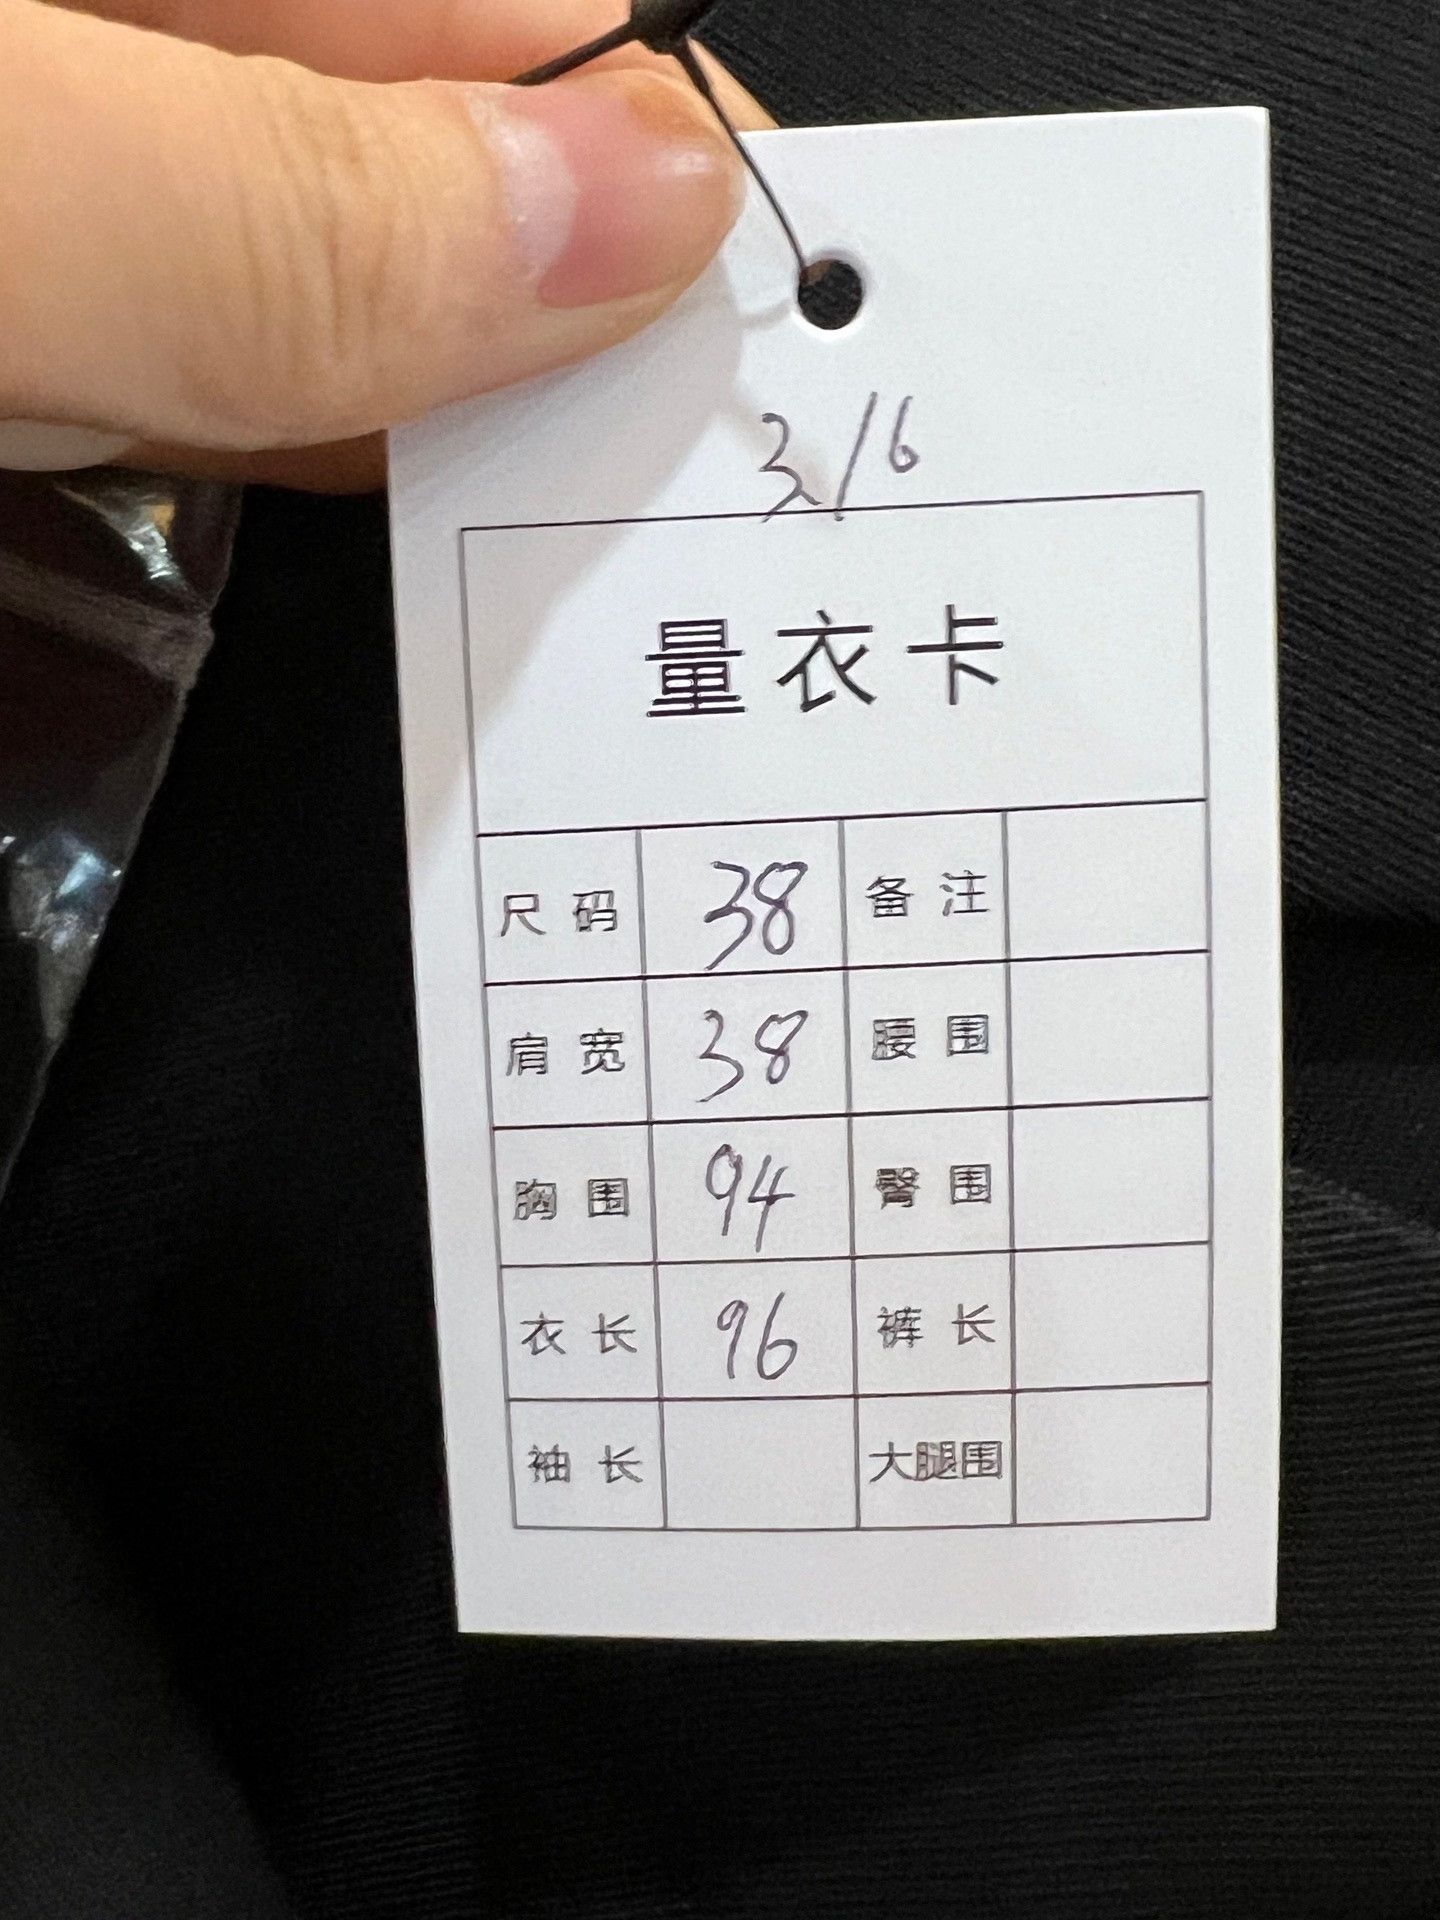 3/6
量衣卡
尺码 38 备注
肩宽 38 腰围
胸围 94 臀围
衣长 96 裤长
袖长 大腿围